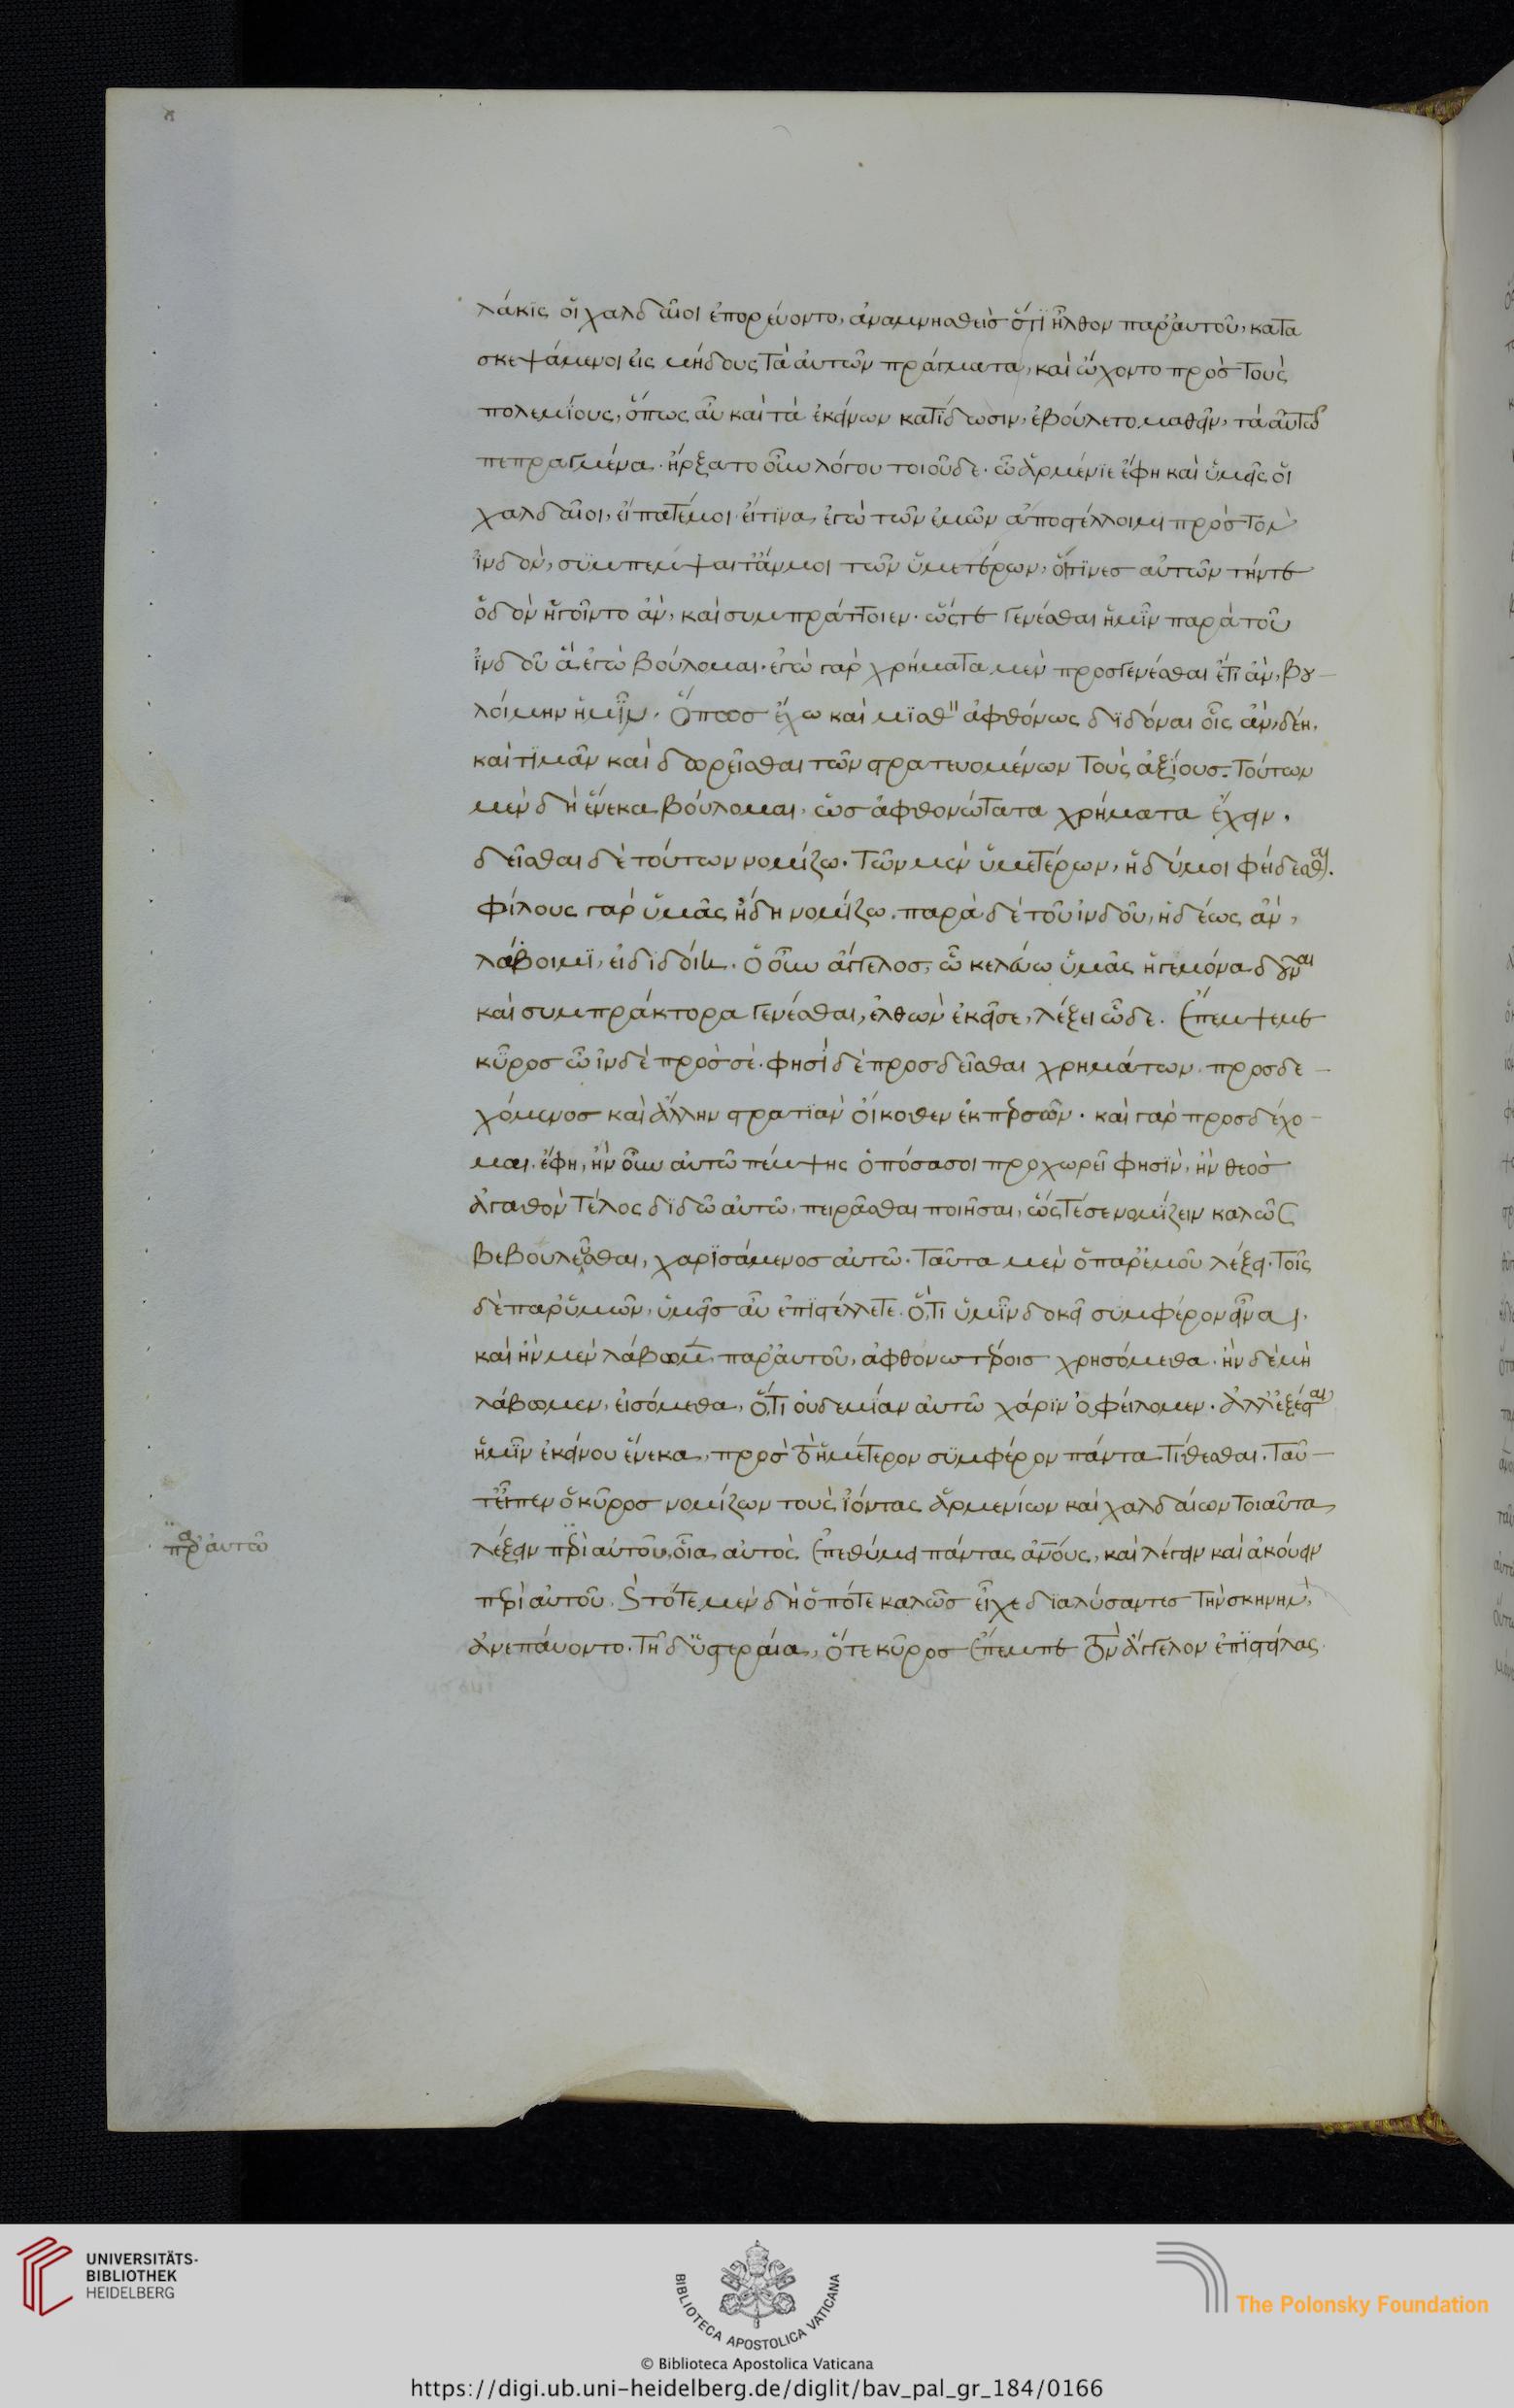 λάκις οἱ χαλδαῖοι ἐπορεύοντο, ἀναμνησθεὶς ὅτι ἦλθον παρ' αὐτοῦ, κατα
σκεψάμενοι εἰς μήδους τὰ αὐτῶν πράγματα, καὶ ὤχοντο πρὸς τοὺς
πολεμίους, ὅπως ἂν καὶ τὰ ἐκείνων κατίδωσιν, ἐβούλετο μαθεῖν, τὰ αὐτῶ
πεπραγμένα. ἤρξατο οὖν λόγου τοιοῦδε. ὦ ἀρμένιε ἔφη καὶ ὑμεῖς οἱ
χαλδαῖοι, εἴπατέ μοι εἴ τινα ἐγὼ τῶν ἐμῶν ἀποστέλλοιμι πρὸς τὸν
ἰνδόν, συμπέμψαιτ' ἄν μοι τῶν ὑμετέρων, οἵτινες αὐτῶν τήν τε
ὁδὸν ἡγοῖντο ἄν, καὶ συμπράττοιεν. ὥστε γενέσθαι ἡμῖν παρὰ τοῦ
ἰνδοῦ ἃ ἐγὼ βούλομαι. ἐγὼ γὰρ χρήματα μὲν προσγενέσθαι ἔτι ἂν, βου
λοίμην ἡμῖν. ὅπως ἔχω καὶ μισθ" ἀφθόνως διδόναι οἷς ἂν, δέη.
καὶ τιμᾶν καὶ δωρεῖσθαι τῶν στρατευομένων τοὺς ἀξίους. τούτων
μὲν δὴ ἕνεκα βούλομαι, ὡς ἀφθονώτατα χρήματα ἔχειν.
δεῖσθαι δὲ τούτων νομίζω. τῶν μὲν ὑμετέρων, ἡδύ μοι φείδεσθαι.
φίλους γὰρ ὑμᾶς ἤδη νομίζω. παρὰ δὲ τοῦ ἰνδοῦ, ἡδέως ἂν,
λάβοιμι, εἰ διδοίη. ὁ οὖν ἄγγελος, ὧ κελεύω ὑμᾶς ἡγεμόνα δοῦναι
καὶ συμπράκτορα γενέσθαι, ἐλθὼν ἐκεῖσε, λέξει ὧδε. ἔπεμψε με
κῦρος ὦ ἰνδὲ πρὸς σέ. φησὶ δὲ προσδεῖσθαι χρημάτων. προσδε
χόμενος καὶ ἄλλην στρατιὰν οἴκοθεν ἐκ περσῶν. καὶ γὰρ προσδέχο
μαι. ἔφη, ἢν οὖν αὐτῶ πέμψης ὁπόσα σοι προχωρεῖ φησὶν, ἢν θεὸς
ἀγαθὸν τέλος διδῶ αὐτῶ, πειρᾶσθαι ποιῆσαι, ὥστέ σε νομίζειν καλῶς
βεβουλεῦσθαι, χαρισάμενος αὐτῶ. ταῦτα μὲν ὁ παρ' ἐμοῦ λέξει. τοῖς
δὲ παρ' ὑμῶν, ὑμεῖς αὖ ἐπιστέλλετε. ὅ,τι ὑμῖν δοκεῖ συμφέρον εἶναι.
καὶ ἢν μὲν λάβωμεν παρ' αὐτοῦ, ἀφθονωτέροις χρησόμεθα. ἢν δὲ μὴ
λάβωμεν, εἰσόμεθα, ὅ,τι οὐδεμίαν αὐτῶ χάριν ὀφείλομεν. ἀλλ' ἐξέσται
ἡμῖν ἐκείνου ἕνεκα, πρὸς τὸ ἡμέτερον συμφέρον πάντα τίθεσθαι. ταῦ
τ' εἶπεν ὁ κῦρος νομίζων τοὺς ἰόντας ἀρμενίων καὶ χαλδαίων τοιαῦτα
παρ' αὐτῶ
λέξειν περὶ αὐτοῦ, οἷα αὐτὸς ἐπεθύμει πάντας ἀνους, καὶ λέγειν καὶ ἀκούειν
περὶ αὐτοῦ. Καὶ τότε μὲν δὴ ὁπότε καλῶς εἶχε διαλύσαντες τὴν σκηνὴν,
ἀνεπαύοντο. τῆ δ' ὑστεραία, ὅτε κῦρος ἔπεμπε τὸν ἄγγελον ἐπιστείλας
UNIVERSITÄTS-
BIBLIOTHEK
HEIDELBERG
BIBLIOTECA APOSTOLICA VATICANA
The Polonsky Foundation
© Biblioteca Apostolica Vaticana
https://digi.ub.uni-heidelberg.de/diglit/bav_pal_gr_184/0166